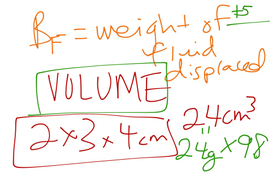 B_F = weight of +5
fluid
displaced
VOLUME
2 × 3 × 4 cm 24 cm³
24g × 98